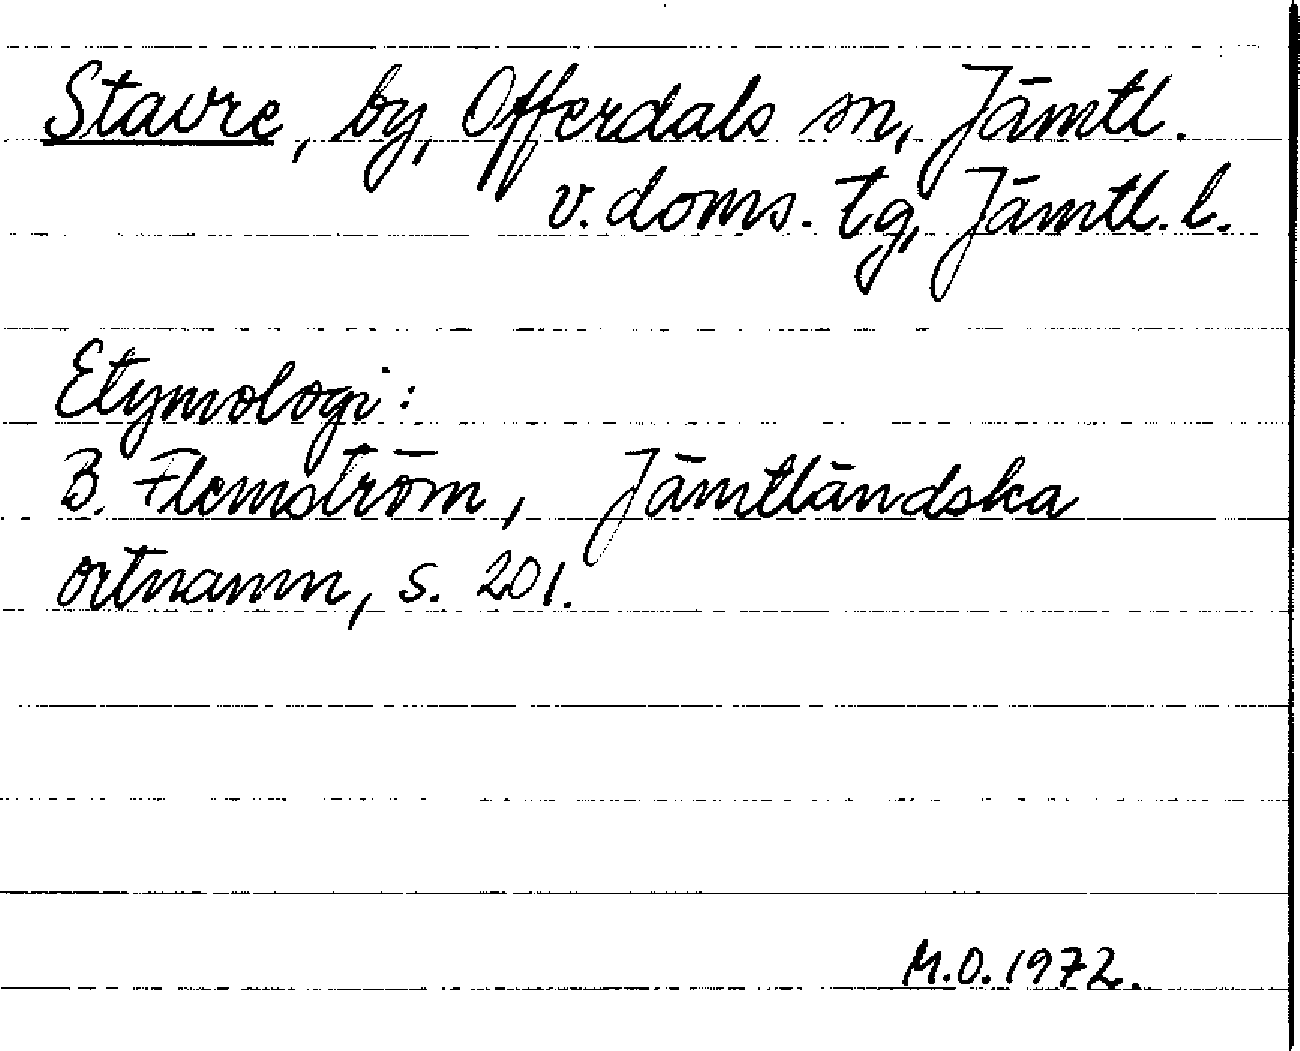 Stavre, by, Offerdals sn, Jämtl.
v. doms. tg, Jämtl. l.
Etymologi:
B. Flemström, Jämtländska
ortnamn, s. 201.
M.O. 1972.